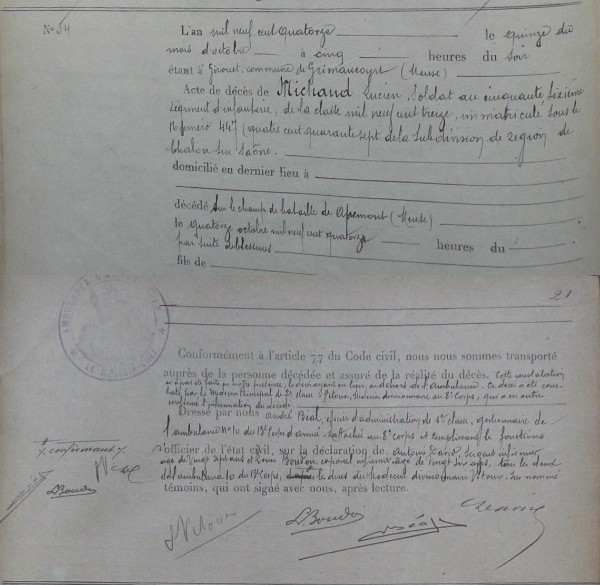 N° 54
L'an mil neuf cent quatorze le quinze du
mois d'octobre à cinq heures du soir
étant à Girouet, commune de Grimaucourt (Meuse)
Acte de décès de Michaud Lucien, Soldat au cinquante sixième
régiment d'infanterie, de la classe mil neuf cent treize, immatriculé sous le
Numéro 447 (quatre cent quarante sept de la subdivision de région de
Chalon sur Saône.
domicilié en dernier lieu à
décédé sur le champ de bataille de Apremont (Meuse)
le quatorze octobre mil neuf cent quatorze heures du
par suite de blessures
fils de
21
AMBULANCE
Conformément à l'article 77 du Code civil, nous nous sommes transporté
auprès de la personne décédée et assuré de la réalité du décès. Cette constatation
n'a pas été faite en notre présence, le décès ayant eu lieu en dehors de l'ambulance. Ce décès a été cons-
taté par le Médecin Principal de 2e classe divisionnaire au 8e Corps, qui a en outre
confirmé l'inhumation du décédé.
Dressé par nous André Béal, officier d'administration de 1e classe, gestionnaire de
l'ambulance N° 10 du 13e Corps d'armée, rattachée au 8e Corps et remplissant les fonctions
d'officier de l'état civil, sur la déclaration de Antoine David, sergent infirmier
âgé de vingt sept ans et Louis Boudon, caporal infirmier âgé de vingt six ans, tous les deux
de l'ambulance 10 du 13e Corps, les dires du Médecin divisionnaire sus nommé
témoins, qui ont signé avec nous, après lecture.
L. Boudon
L. Boudon